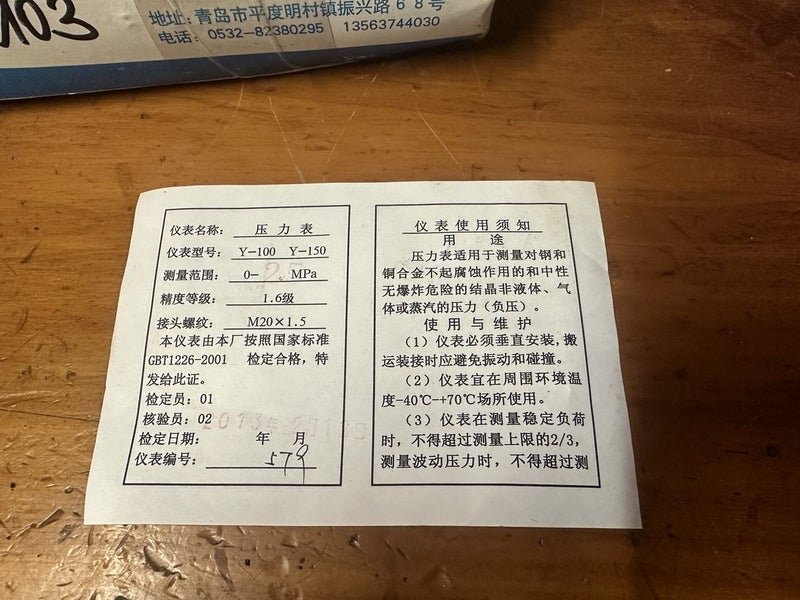 103
地址:青岛市平度明村镇振兴路68号
电话: 0532-82380295 13563744030
仪表名称: 压力表
仪表型号: Y-100 Y-150
测量范围: 0-2.5 MPa
精度等级: 1.6级
接头螺纹: M20×1.5
本仪表由本厂按照国家标准
GBT1226-2001 检定合格，特
发给此证。
检定员: 01
核验员: 02
2013年2月
检定日期: 年 月
仪表编号: 579
仪表使用须知
用 途
压力表适用于测量对钢和
铜合金不起腐蚀作用的和中性
无爆炸危险的结晶非液体、气
体或蒸汽的压力（负压）。
使用与维护
（1）仪表必须垂直安装,搬
运装接时应避免振动和碰撞。
（2）仪表宜在周围环境温
度-40℃-+70℃场所使用。
（3）仪表在测量稳定负荷
时，不得超过测量上限的2/3,
测量波动压力时，不得超过测